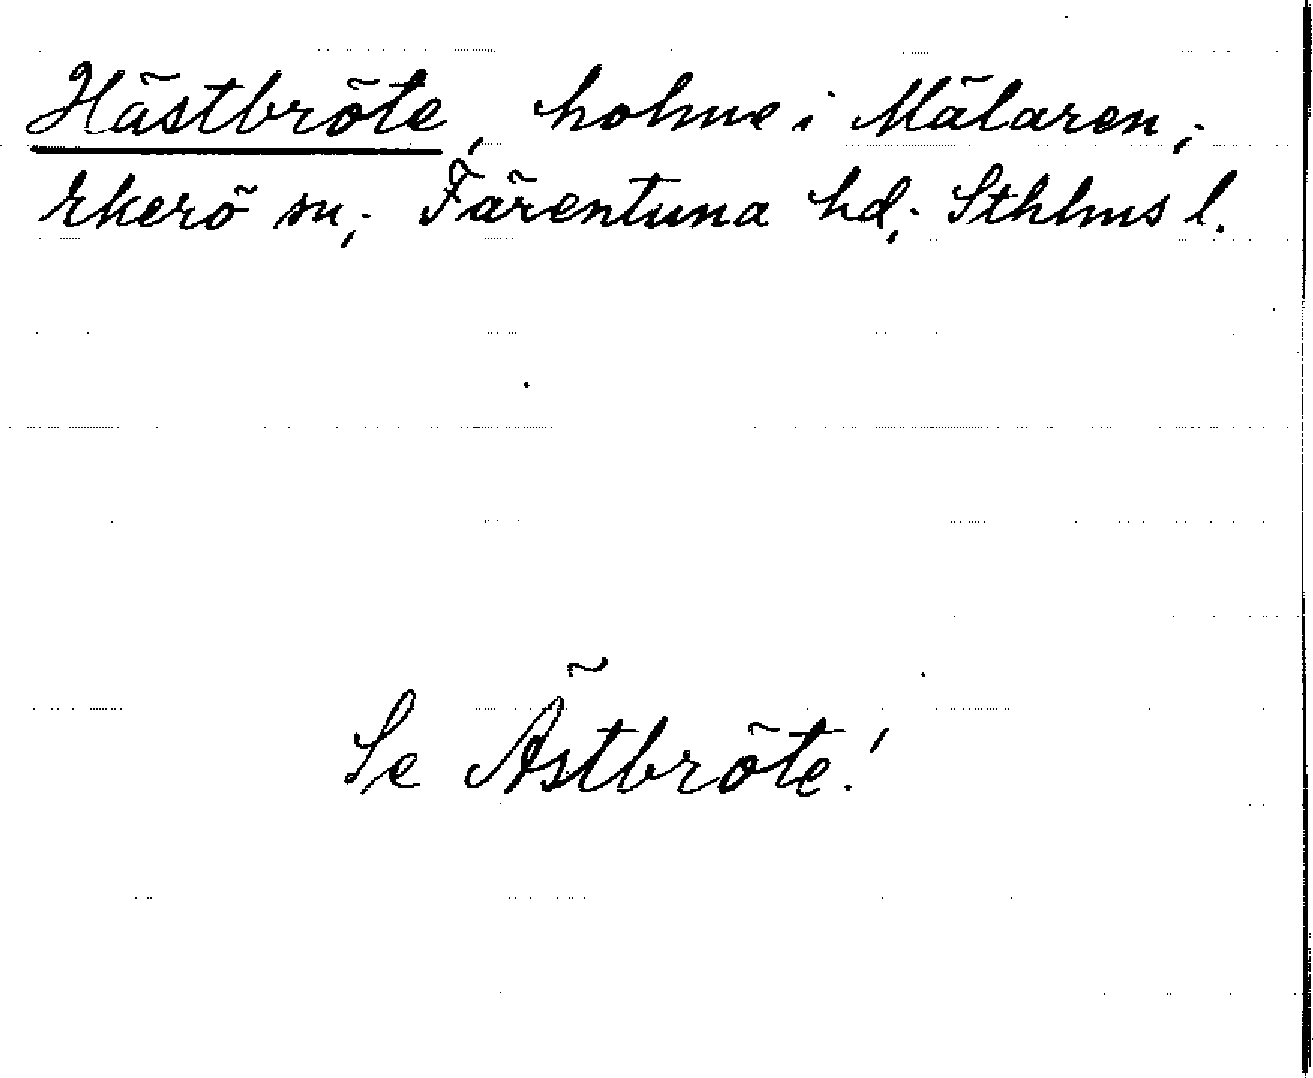 Hästbröte, holme i Mälaren,;
Ekerö sn,; Färentuna hd,; Sthlms l.
Se Ästbröte!